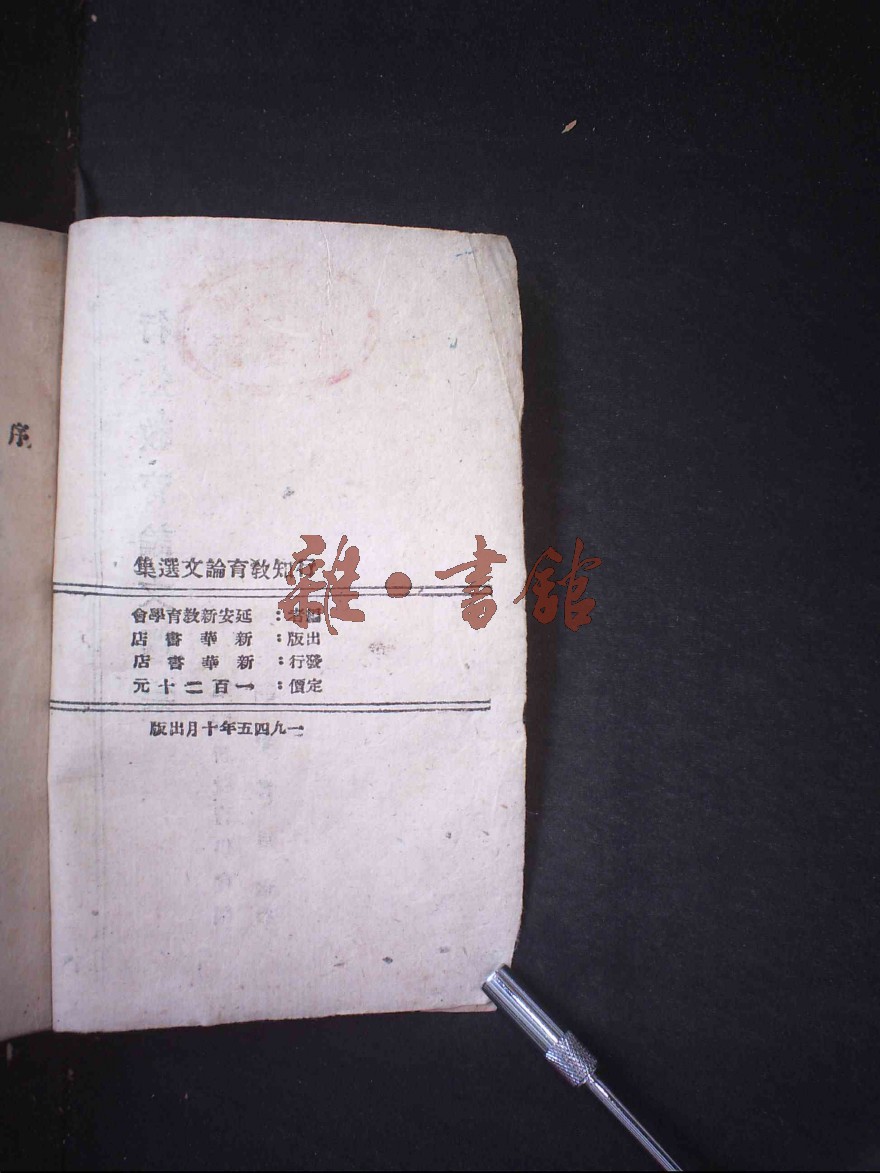 行知教育論文選集
編者：延安新教育學會
出版：新華書店
發行：新華書店
定價：一百二十元
一九四五年十月出版
序
雜·書館